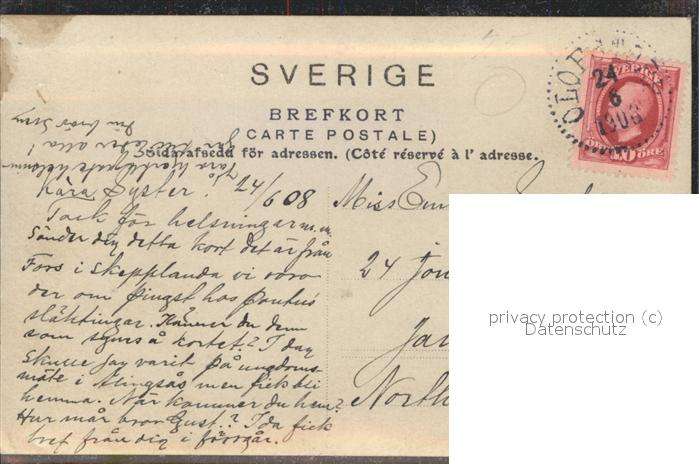 SVERIGE
BREFKORT
(CARTE POSTALE)
Sidan afsedd för adressen. (Côté réservé à l' adresse.
24
6
1908
SVERIGE
10 ÖRE
Kära Syster! 24/6 08
Tack för helsningar m.m.
Sänder dig detta kort det är från
Fors i Skepplanda vi voro
der om pingst hos Pontus
släktingar. Känner du dem
som synes å kortet? I dag
skulle jag varit på ungdoms
möte i Alingsås men fick bli
hemma. När kommer du hem?
Hur mår bror Gust.? Ida fick
bref från dig i förrgår.
Miss
24
North
privacy protection (c)
Datenschutz